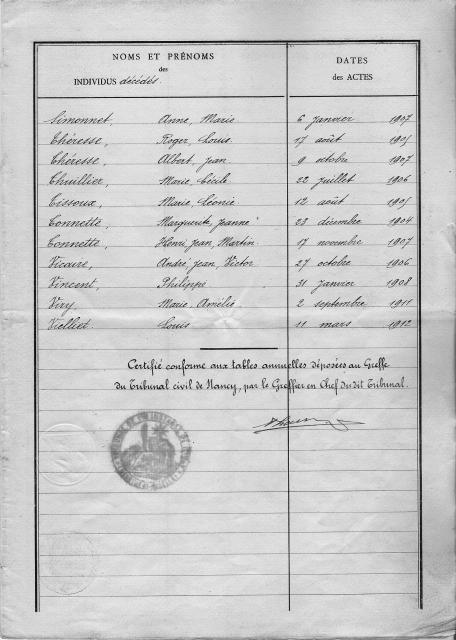 NOMS ET PRÉNOMS
des
INDIVIDUS décédés.
DATES
des ACTES
Simonnet, Anne, Marie 6 janvier 1907
Théresse, Roger, Louis 17 août 1905
Théresse, Albert, Jean 9 octobre 1907
Thuillier, Marie, Cécile 22 juillet 1906
Tissoux, Marie, Léonie 12 août 1905
Tonnette, Marguerite, Jeanne 23 décembre 1904
Tonnette, Henri, Jean, Martin 17 novembre 1907
Vicaire, André, Jean, Victor 27 octobre 1906
Vincent, Philippe 31 janvier 1908
Viry, Marie-Amélie 2 septembre 1911
Vielliet. Louis 11 mars 1912
Certifié conforme aux tables annuelles déposées au Greffe
du Tribunal civil de Nancy, par le Greffier en Chef dudit Tribunal.